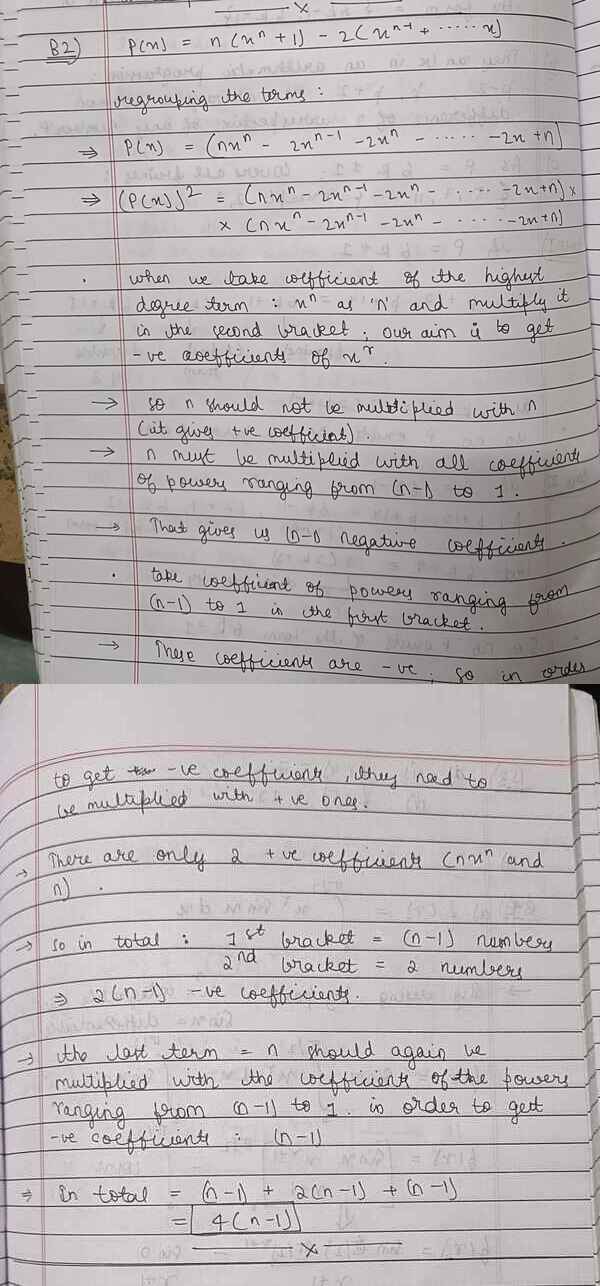 x
B2) P(x) = n(xⁿ + 1) - 2(xⁿ⁻¹ + ...... x)
regrouping the terms :
⇒ P(x) = (nxⁿ - 2xⁿ⁻¹ - 2xⁿ - ...... - 2x + n)
⇒ (P(x))² = (nxⁿ - 2xⁿ⁻¹ - 2xⁿ - ...... - 2x + n) ×
× (nxⁿ - 2xⁿ⁻¹ - 2xⁿ - ...... - 2x + n)
. when we take coefficient of the highest
degree term : xⁿ as 'n' and multiply it
in the second bracket ; our aim is to get
-ve coefficients of xʳ.
→ so n should not be multiplied with n
(it gives +ve coefficient).
→ n must be multiplied with all coefficients
of powers ranging from (n-1) to 1.
→ That gives us (n-1) negative coefficients.
. take coefficient of powers ranging from
(n-1) to 1 in the first bracket.
→ These coefficients are -ve, so in order
to get -ve coefficients, they need to
be multiplied with +ve ones.
→ There are only 2 +ve coefficients (nxⁿ and
n).
→ so in total : 1st bracket = (n-1) numbers
2nd bracket = 2 numbers
⇒ 2(n-1) -ve coefficients.
→ the last term = n should again be
multiplied with the coefficients of the powers
ranging from (n-1) to 1. in order to get
-ve coefficients : (n-1)
⇒ In total = (n-1) + 2(n-1) + (n-1)
= 4(n-1)
x